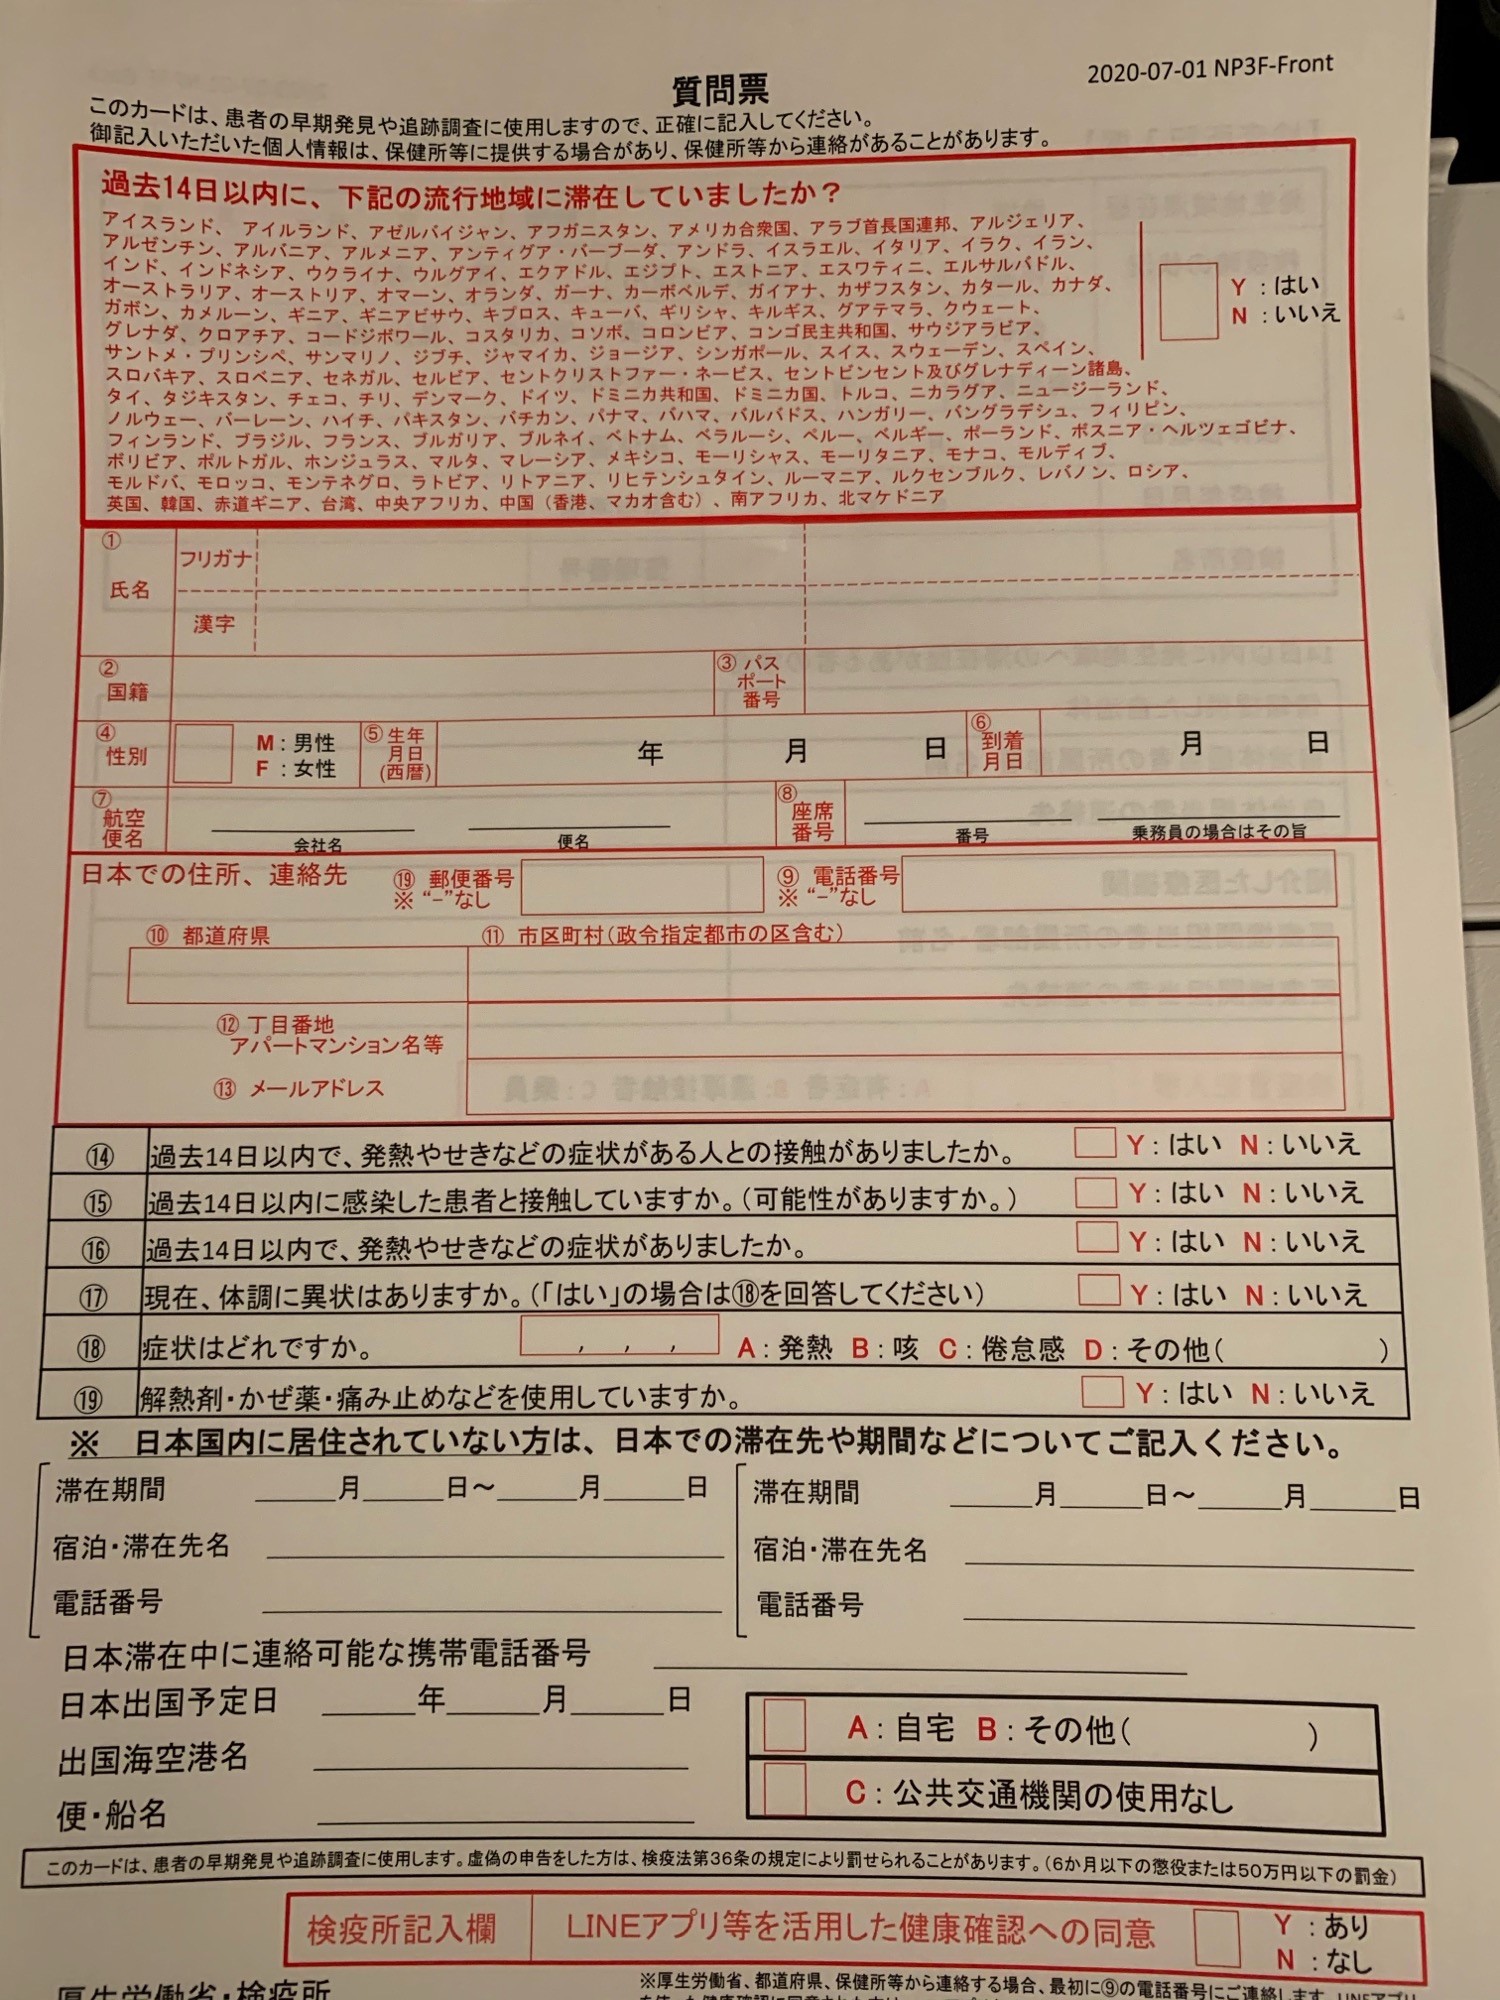 2020-07-01 NP3F-Front
質問票
このカードは、患者の早期発見や追跡調査に使用しますので、正確に記入してください。
御記入いただいた個人情報は、保健所等に提供する場合があり、保健所等から連絡があることがあります。
過去14日以内に、下記の流行地域に滞在していましたか？
アイスランド、アイルランド、アゼルバイジャン、アフガニスタン、アメリカ合衆国、アラブ首長国連邦、アルジェリア、
アルゼンチン、アルバニア、アルメニア、アンティグア・バーブーダ、アンドラ、イスラエル、イタリア、イラク、イラン、
インド、インドネシア、ウクライナ、ウルグアイ、エクアドル、エジプト、エストニア、エスワティニ、エルサルバドル、
オーストラリア、オーストリア、オマーン、オランダ、ガーナ、カーボベルデ、ガイアナ、カザフスタン、カタール、カナダ、
ガボン、カメルーン、ギニア、ギニアビサウ、キプロス、キューバ、ギリシャ、キルギス、グアテマラ、クウェート、
グレナダ、クロアチア、コートジボワール、コスタリカ、コソボ、コロンビア、コンゴ民主共和国、サウジアラビア、
サントメ・プリンシペ、サンマリノ、ジブチ、ジャマイカ、ジョージア、シンガポール、スイス、スウェーデン、スペイン、
スロバキア、スロベニア、セネガル、セルビア、セントクリストファー・ネービス、セントビンセント及びグレナディーン諸島、
タイ、タジキスタン、チェコ、チリ、デンマーク、ドイツ、ドミニカ共和国、ドミニカ国、トルコ、ニカラグア、ニュージーランド、
ノルウェー、バーレーン、ハイチ、パキスタン、バチカン、パナマ、バハマ、バルバドス、ハンガリー、バングラデシュ、フィリピン、
フィンランド、ブラジル、フランス、ブルガリア、ブルネイ、ベトナム、ベラルーシ、ペルー、ベルギー、ポーランド、ボスニア・ヘルツェゴビナ、
ボリビア、ポルトガル、ホンジュラス、マルタ、マレーシア、メキシコ、モーリシャス、モーリタニア、モナコ、モルディブ、
モルドバ、モロッコ、モンテネグロ、ラトビア、リトアニア、リヒテンシュタイン、ルーマニア、ルクセンブルク、レバノン、ロシア、
英国、韓国、赤道ギニア、台湾、中央アフリカ、中国（香港、マカオ含む）、南アフリカ、北マケドニア
Y：はい
N：いいえ
① 氏名
フリガナ
漢字
② 国籍
③ パスポート番号
④ 性別
M：男性
F：女性
⑤ 生年月日(西暦)
年 月 日
⑥ 到着月日
月 日
⑦ 航空便名
会社名 便名
⑧ 座席番号
番号 乗務員の場合はその旨
日本での住所、連絡先
⑲ 郵便番号
※ “−”なし
⑨ 電話番号
※ “−”なし
⑩ 都道府県
⑪ 市区町村(政令指定都市の区含む)
⑫ 丁目番地
アパートマンション名等
⑬ メールアドレス
⑭ 過去14日以内で、発熱やせきなどの症状がある人との接触がありましたか。 Y：はい N：いいえ
⑮ 過去14日以内に感染した患者と接触していますか。(可能性がありますか。) Y：はい N：いいえ
⑯ 過去14日以内で、発熱やせきなどの症状がありましたか。 Y：はい N：いいえ
⑰ 現在、体調に異状はありますか。(「はい」の場合は⑱を回答してください) Y：はい N：いいえ
⑱ 症状はどれですか。 , , , A：発熱 B：咳 C：倦怠感 D：その他( )
⑲ 解熱剤・かぜ薬・痛み止めなどを使用していますか。 Y：はい N：いいえ
※ 日本国内に居住されていない方は、日本での滞在先や期間などについてご記入ください。
滞在期間 月 日～ 月 日
宿泊・滞在先名
電話番号
滞在期間 月 日～ 月 日
宿泊・滞在先名
電話番号
日本滞在中に連絡可能な携帯電話番号
日本出国予定日 年 月 日
出国海空港名
便・船名
A：自宅 B：その他( )
C：公共交通機関の使用なし
このカードは、患者の早期発見や追跡調査に使用します。虚偽の申告をした方は、検疫法第36条の規定により罰せられることがあります。(6か月以下の懲役または50万円以下の罰金)
検疫所記入欄
LINEアプリ等を活用した健康確認への同意
Y：あり
N：なし
厚生労働省・検疫所
※厚生労働省、都道府県、保健所等から連絡する場合、最初に⑨の電話番号にご連絡します。LINEアプリ